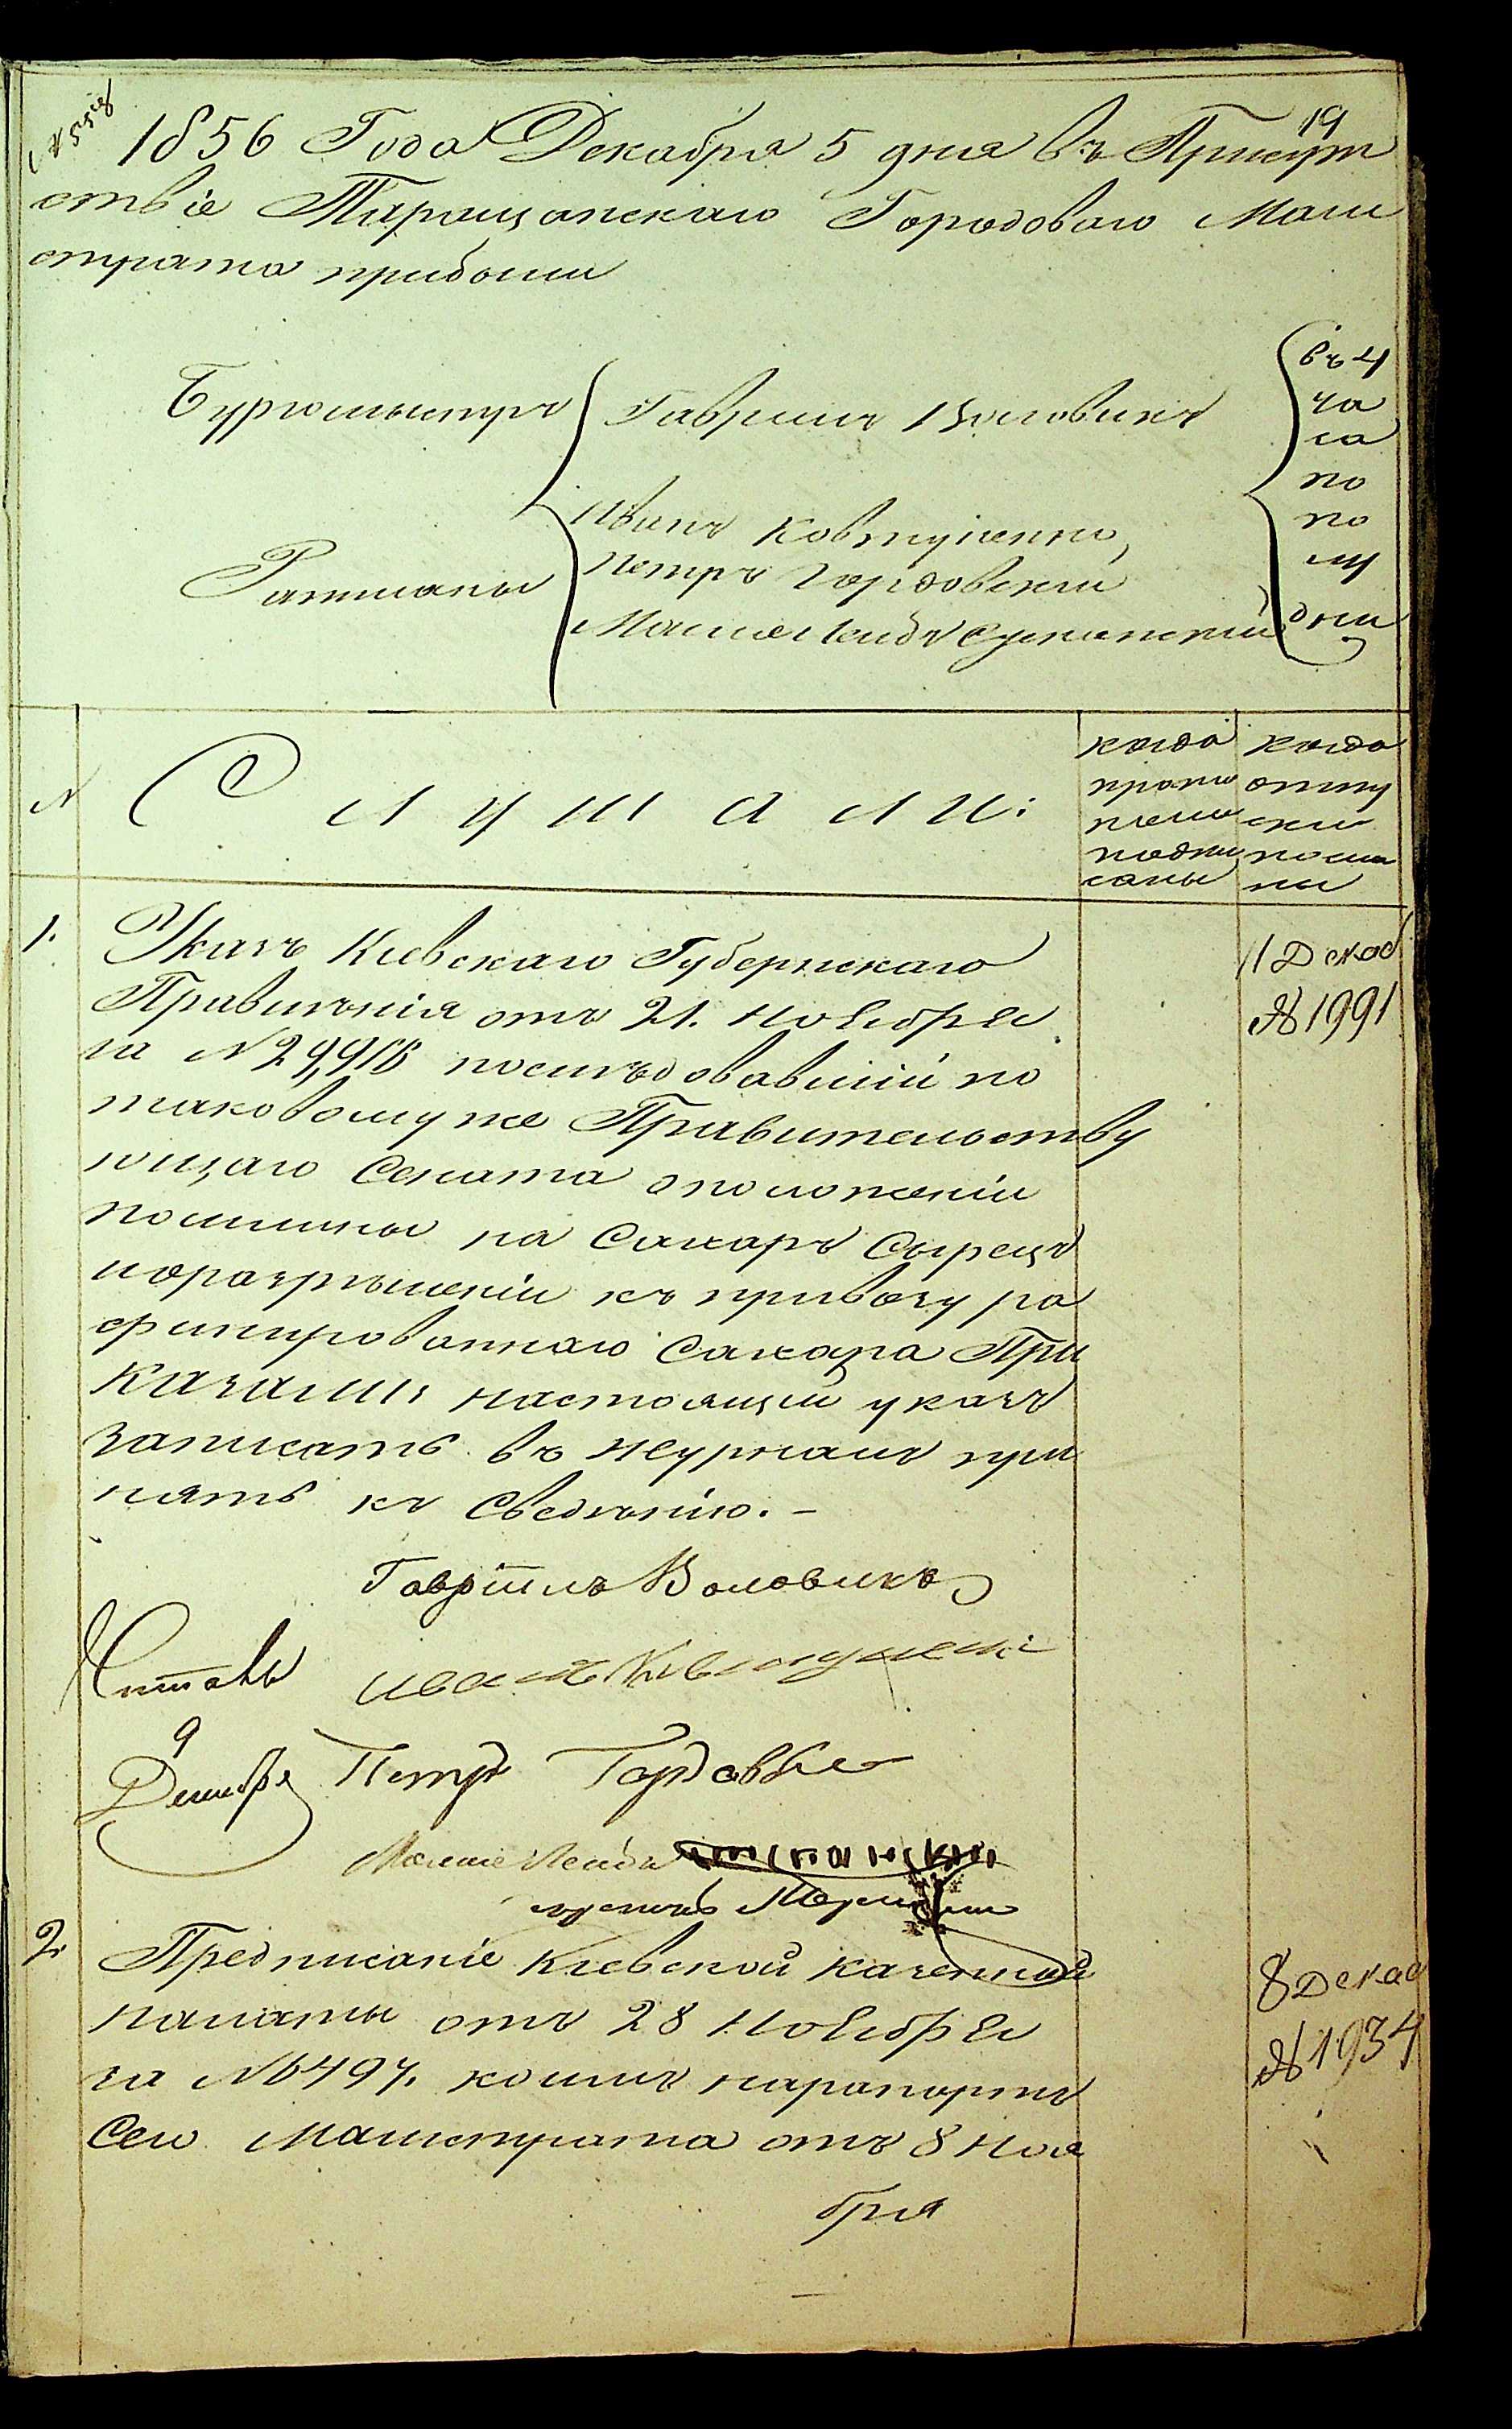 19
1856 Года Декабря 5 дня въ Присут
ствіе Таращанскаго Городоваго Маги
страта прибыли
Бургомыстръ Гаврилъ Воловикъ
Ратманы
Иванъ Ковтуненко,
Петръ Гордовскій
Мошко Лейбъ Сусканскій
въ 4
ча
са
по
по
лу
дни
N Слушали:
когда
прото
колы
подпи
саны
когда
отпу
ски
посла
ны
1. Указъ Кіевскаго Губернскаго
Правленія отъ 21. Ноября
за N 29,918 послѣдовавшій по
таковому же Правительству
ющаго Сената о положеніи
пошлины на Сахаръ Сырецъ
и о разрѣшеніи къ привозу ра
финированнаго Сахара При
казали: настоящій указъ
записать въ Журналъ при
нять къ Сведѣнію. -
11 Декаб
№ 1991
Гавріилъ Воловикъ
Читалъ
Иванъ Ковтуненко
9
Декабря
Петръ Гордовскій
Мошко Лейбъ
2. Предписаніе Кіевской казенной
палаты отъ 28 Ноября
за N 6497. коимъ на рапортъ
Сего Магистрата отъ 8 Ноя
бря
8 Декаб
№ 1934